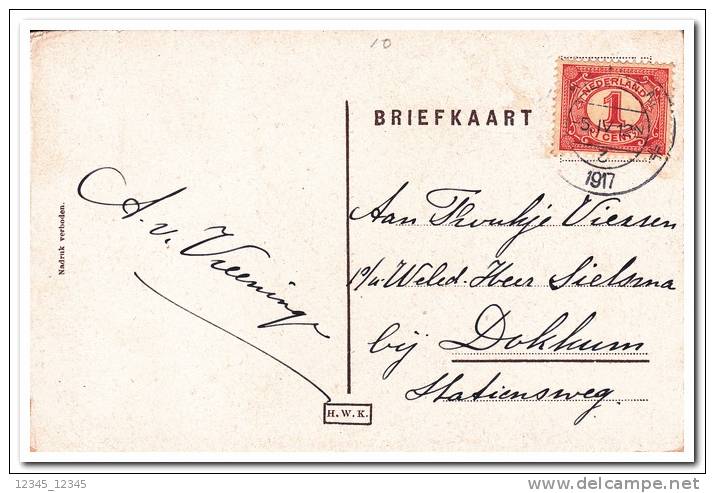 10
BRIEFKAART
NEDERLAND
1
CENT
5.IV 12N
1917
Nadruk verboden.
A. v. Vreeninge
Aan Froukje Viersen
p/a Weled. Heer Sielsma
bij Dokkum
Statiensweg.
H.W.K.
12345_12345
delcampe.net